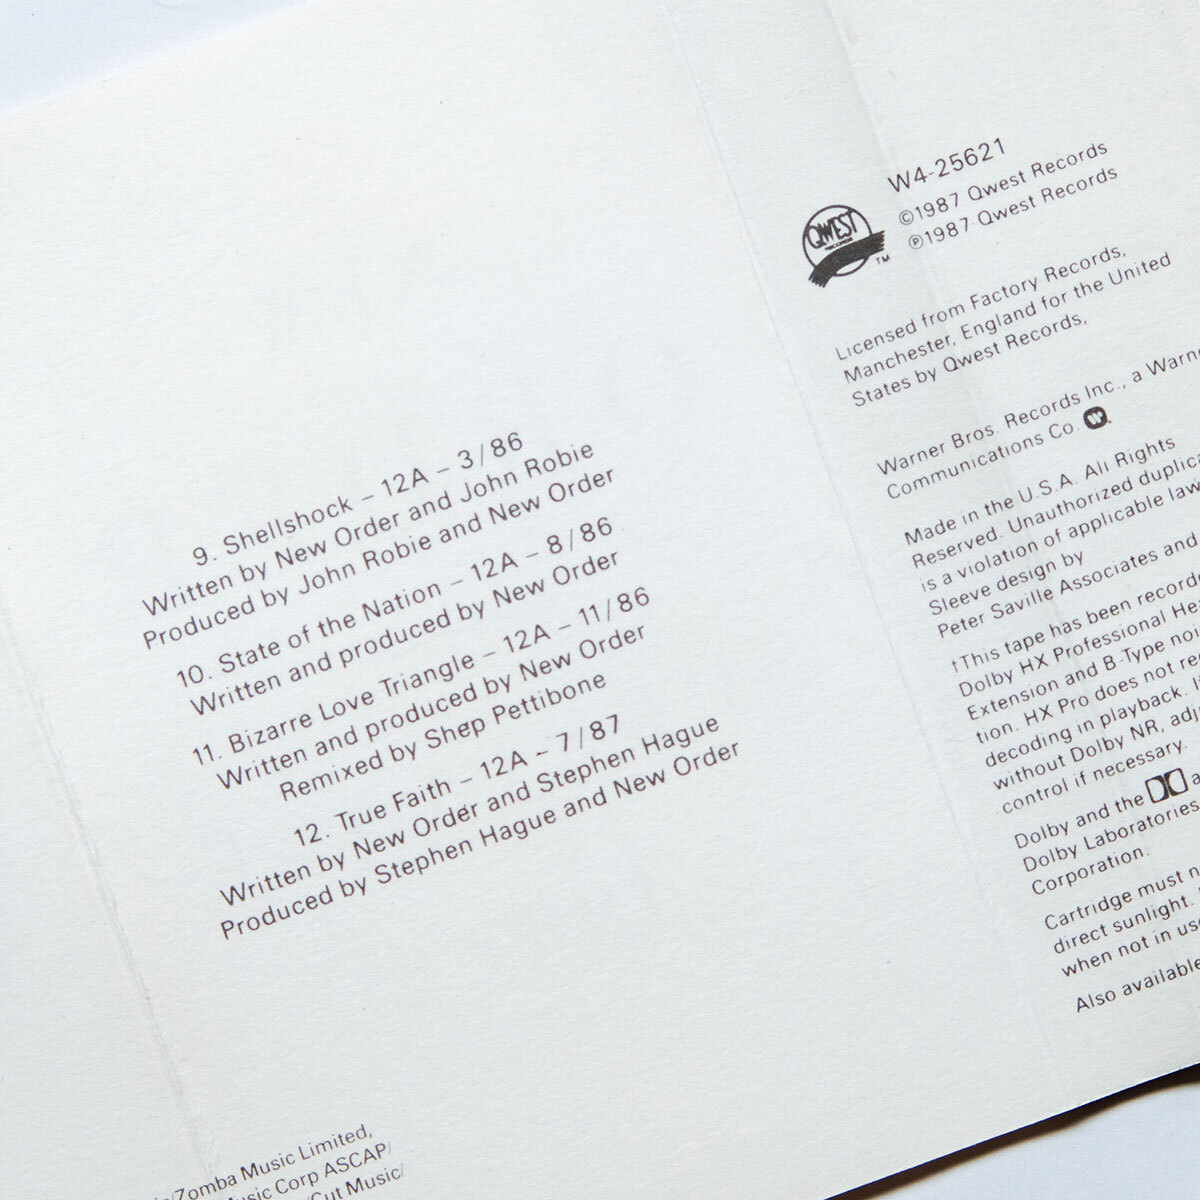 9. Shellshock – 12A – 3/86
Written by New Order and John Robie
Produced by John Robie and New Order
10. State of the Nation – 12A – 8/86
Written and produced by New Order
11. Bizarre Love Triangle – 12A – 11/86
Written and produced by New Order
Remixed by Shep Pettibone
12. True Faith – 12A – 7/87
Written by New Order and Stephen Hague
Produced by Stephen Hague and New Order
/Zomba Music Limited,
Music Corp ASCAP/
/Cut Music/
QWEST
RECORDS
TM
W4-25621
©1987 Qwest Records
℗1987 Qwest Records
Licensed from Factory Records,
Manchester, England for the United
States by Qwest Records,
Warner Bros. Records Inc., a Warn
Communications Co.
Made in the U.S.A. All Rights
Reserved. Unauthorized duplica
is a violation of applicable law
Sleeve design by
Peter Saville Associates and
†This tape has been recorde
Dolby HX Professional He
Extension and B-Type noi
tion. HX Pro does not re
decoding in playback. I
without Dolby NR, adj
control if necessary.
Dolby and the a
Dolby Laboratories
Corporation.
Cartridge must n
direct sunlight.
when not in us
Also available